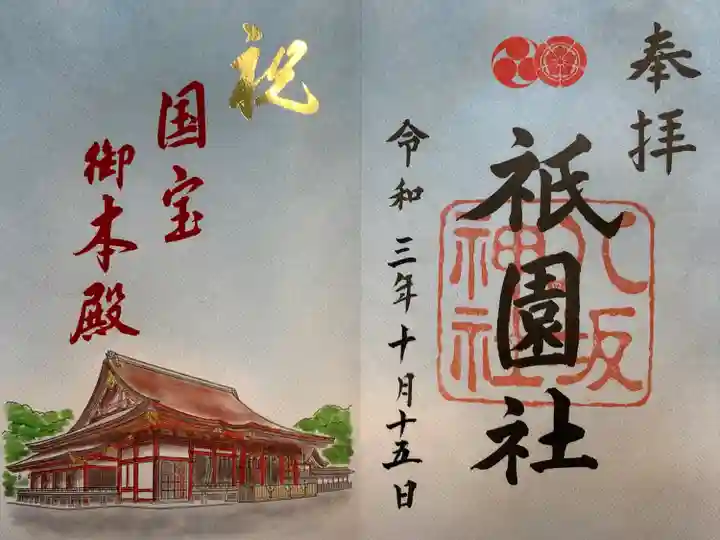 奉拝
祇園社
八坂神社
令和三年十月十五日
祝
国宝
御本殿